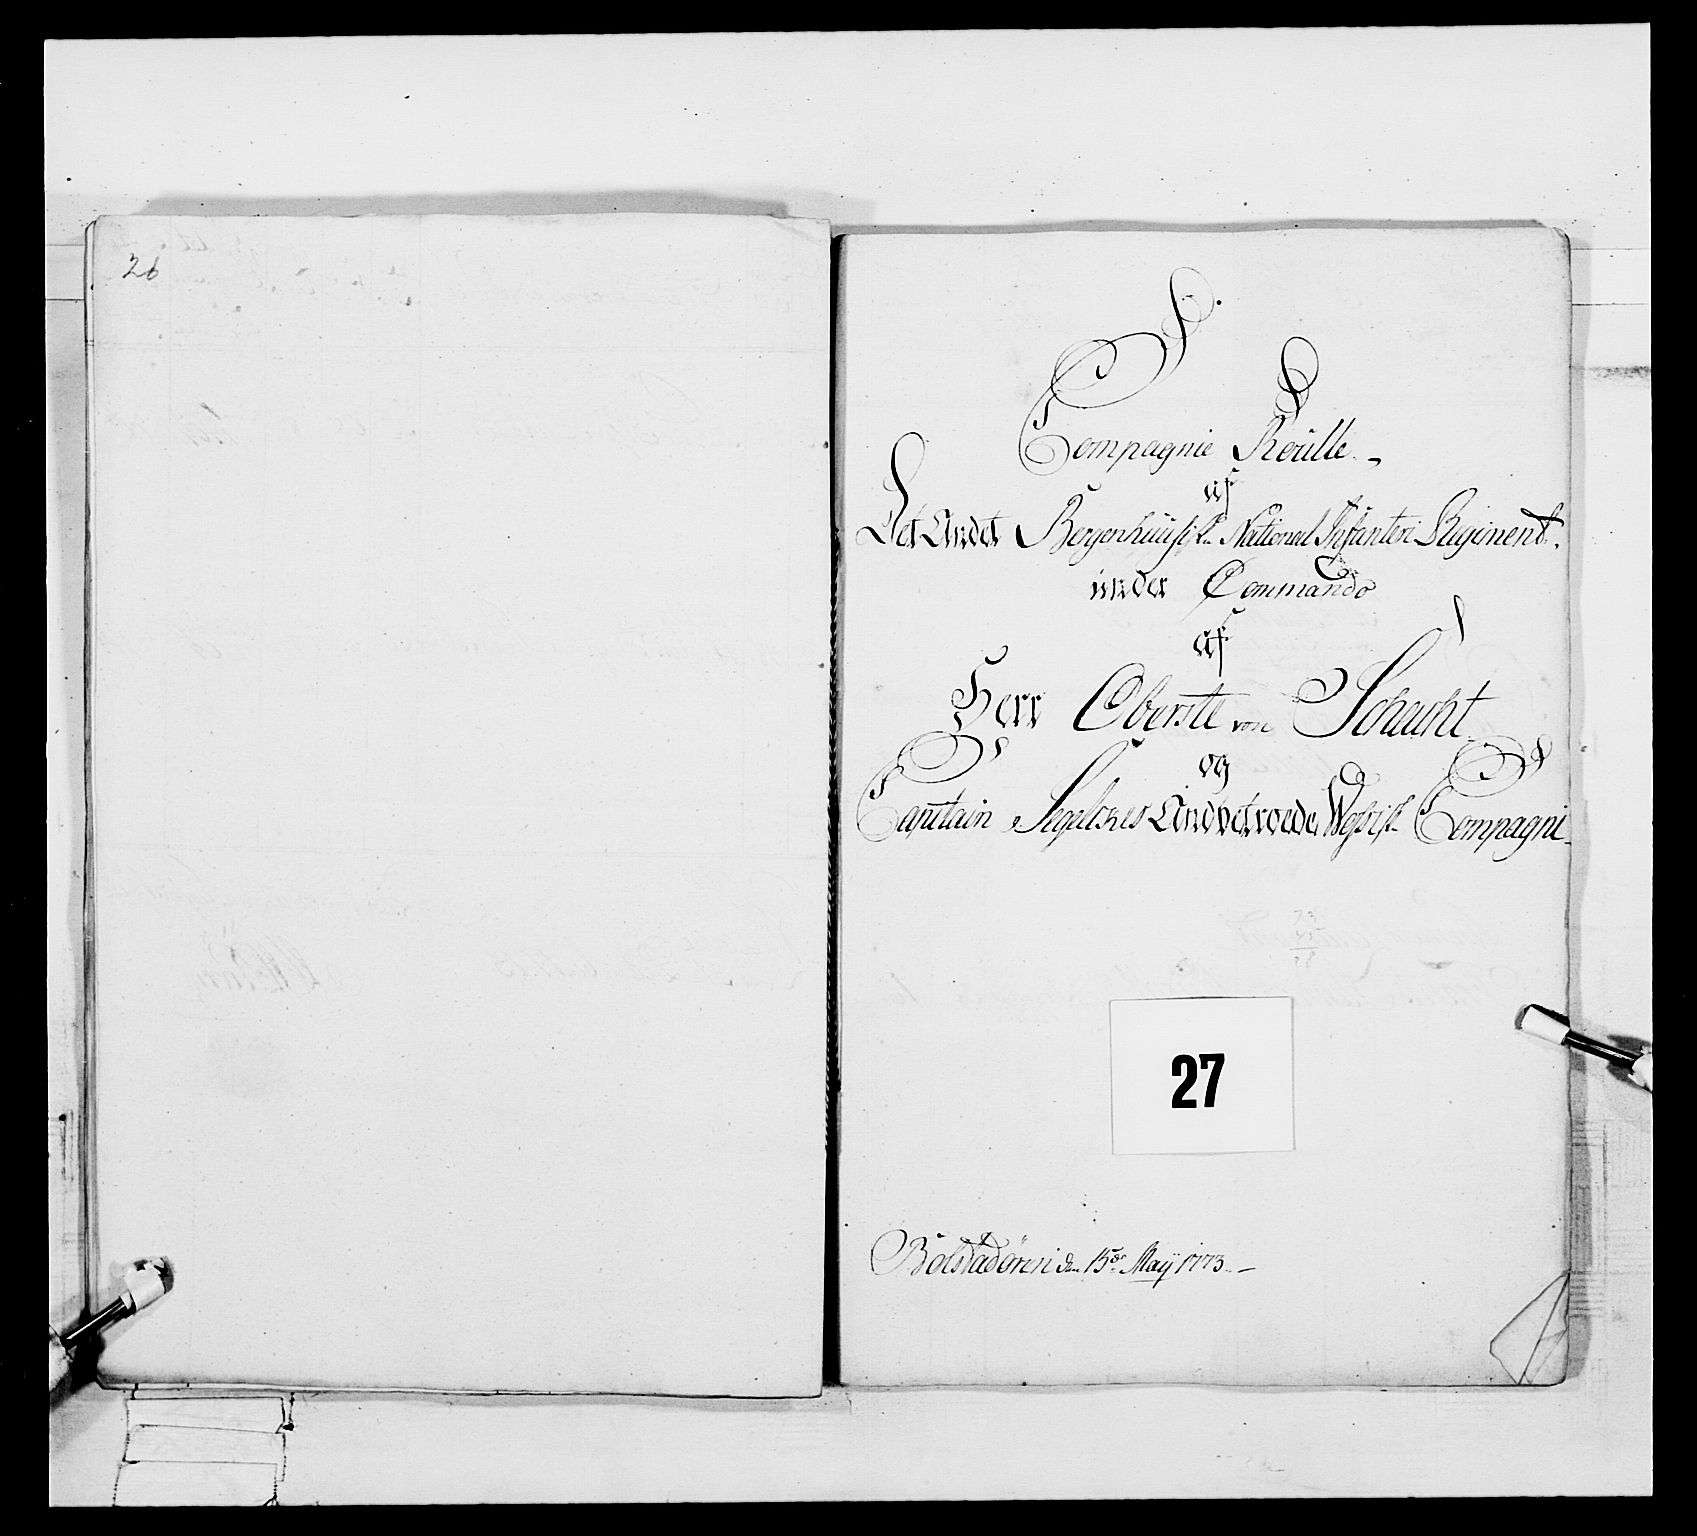 26
Compagnie Roülle.
af
Det Andet Bergenhuusiske National Infanteri Regiment.
ünder Commando
af
Herr Oberste von Schacht
og
Capitain Segelckes Andbetroede Wossiske Compagni
73
45
28
27
Bolstadören den 15de Maÿ 1773.